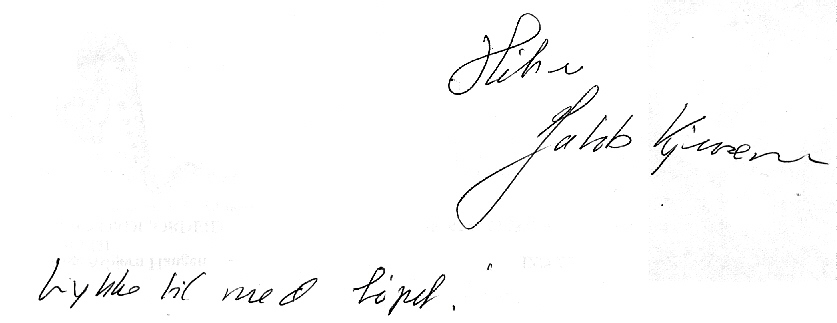 Hilsen
Jakob Kjersem
Lykke til med løpet.